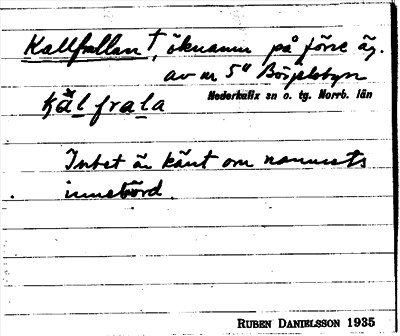 Kallfrallan †, öknamn på förre äg.
av nr 5⁴ Börjelsbyn
Nederkalix sn o. tg. Norrb. län
kălfrala
Intet är känt om namnets
innebörd.
RUBEN DANIELSSON 1935